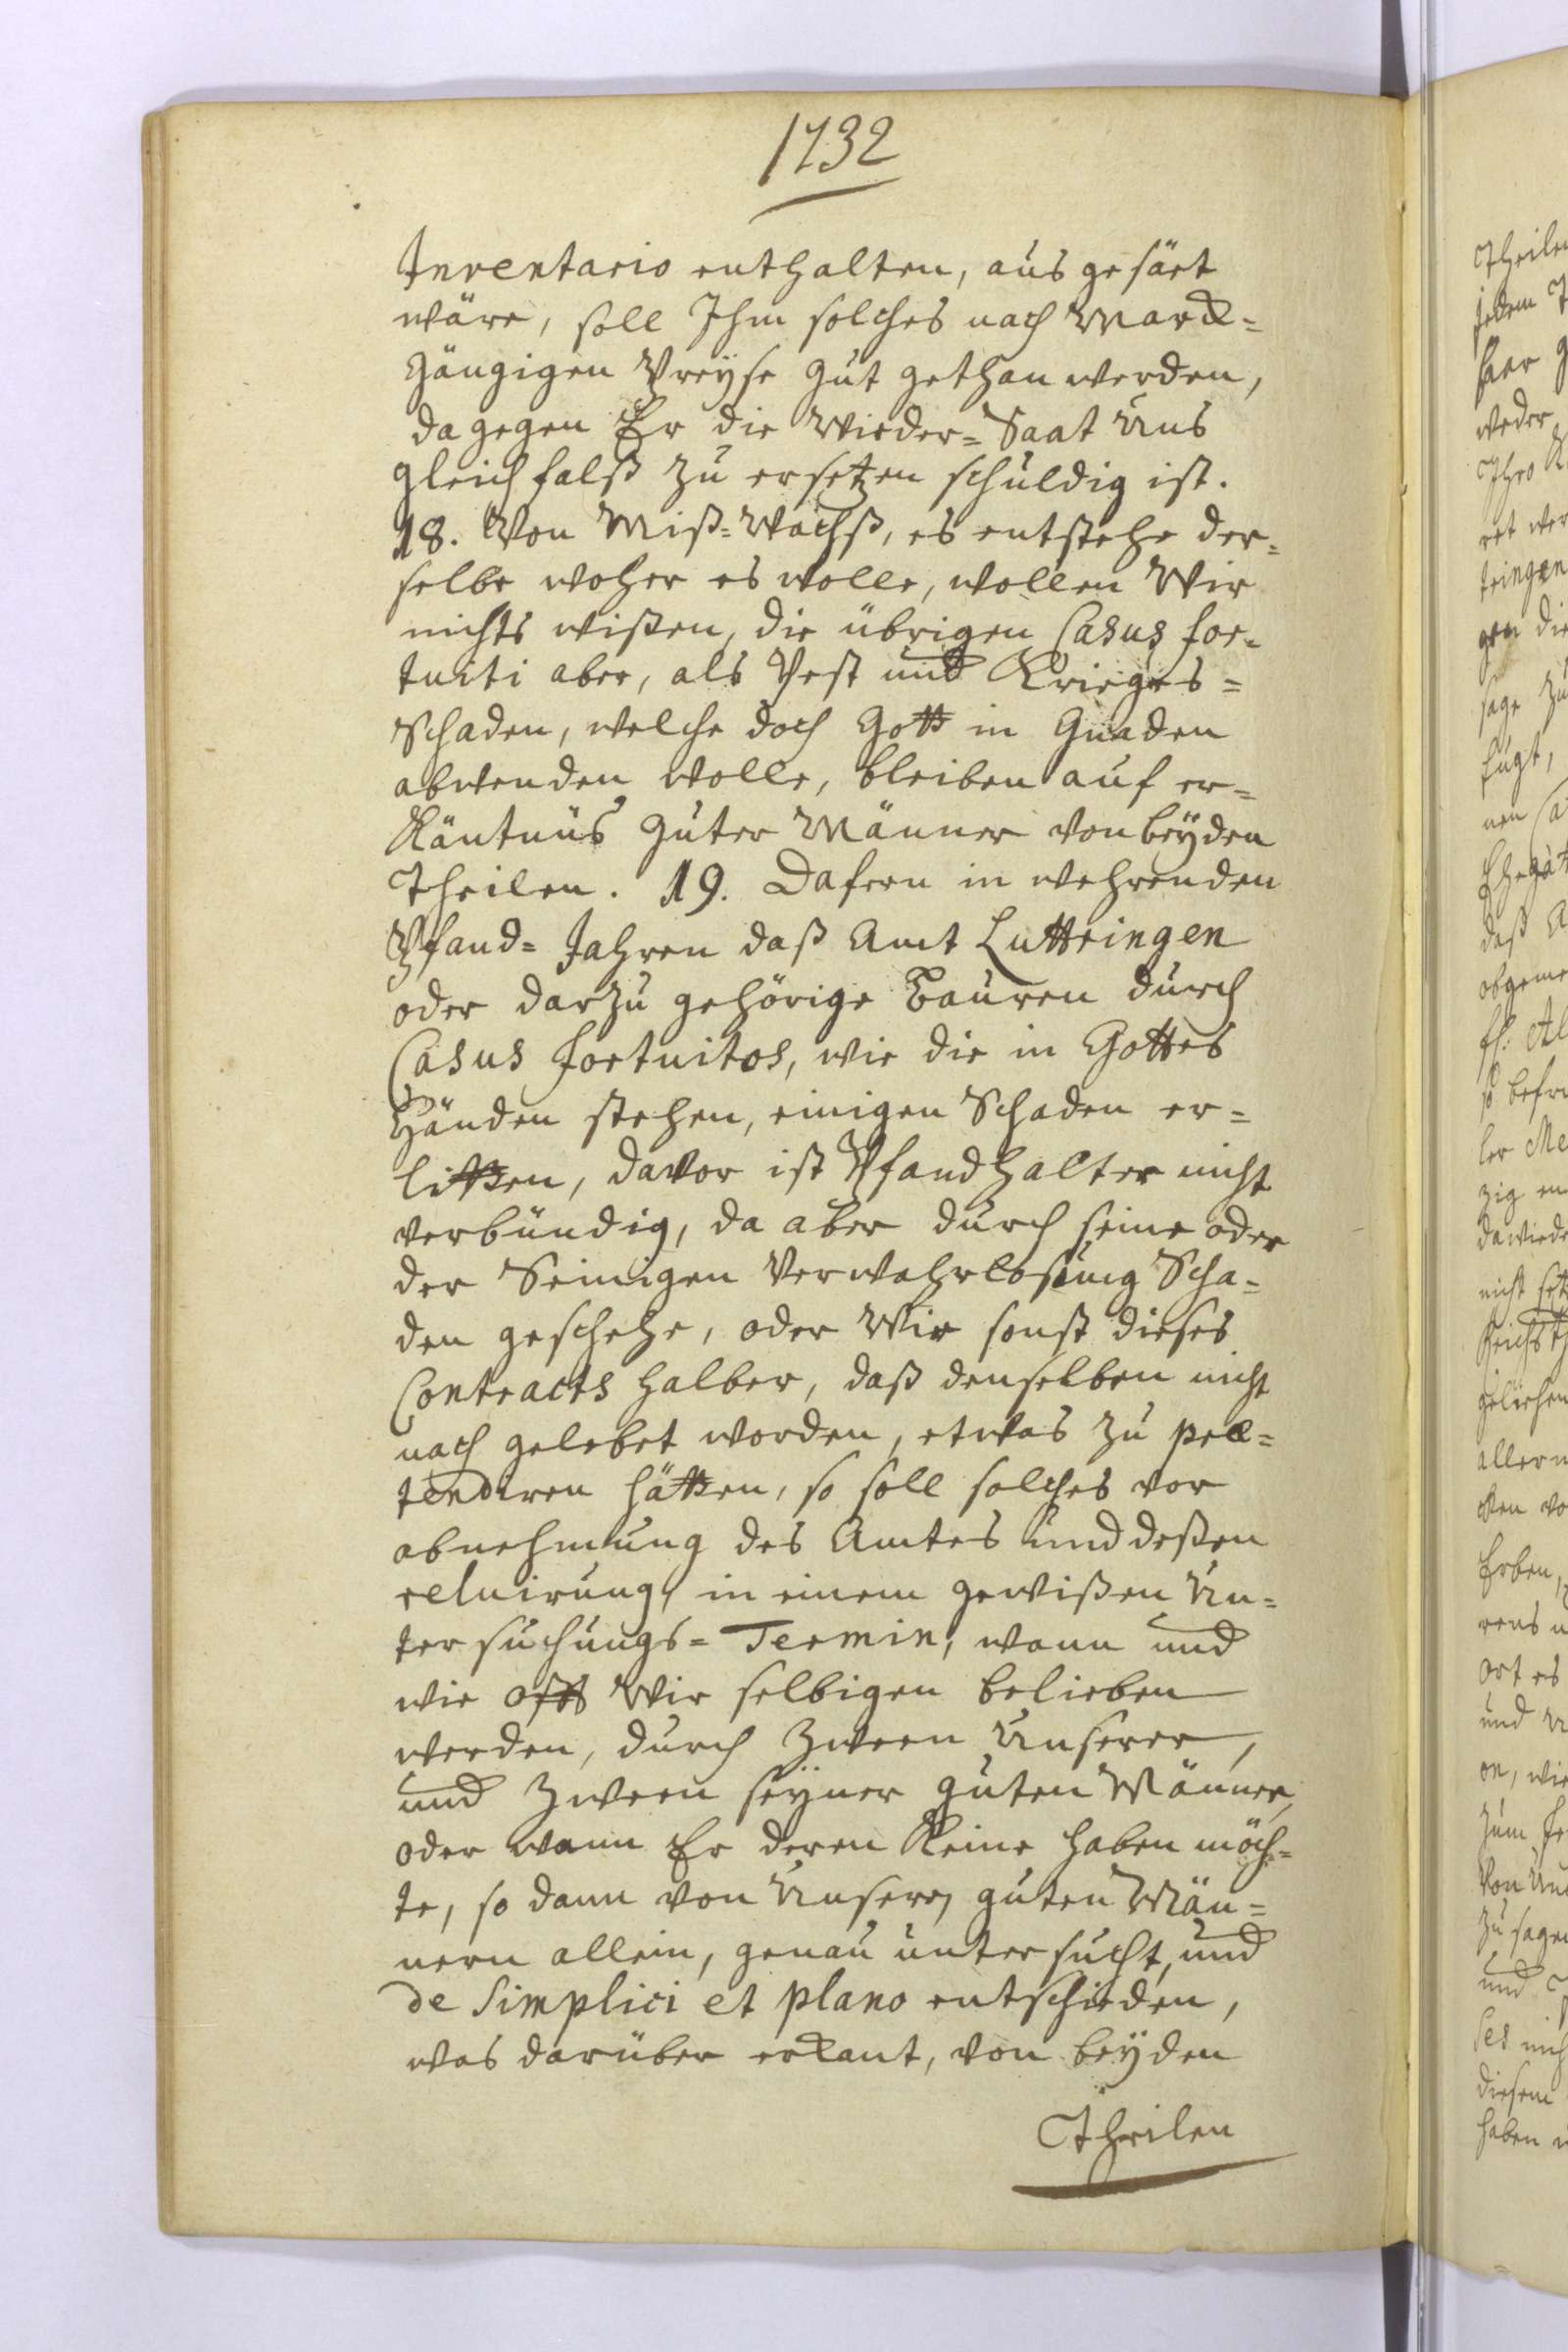 1732
Inventario enthalten, aus gesäet
wäre, soll Ihm solches nach Marck-
gängigen Preyse gut gethan werden,
da gegen Er die Wieder-Saat Uns
gleichfalß zu ersetzen schuldig ist.
18. Von Miß-Wachß, es entstehe der-
selbe woher es wolle, wollen Wir
nichts wißen, die übrigen Casus for-
tuiti aber, als Pest und Krieges-
Schaden, welche doch Gott in Gnaden
abwenden wolle, bleiben auf er-
käntnüs guter Männer von beyden
Theilen. 19. Dafern in wehrenden
Pfand-Jahren daß Amt Luttringen
oder darzu gehörige Bauren durch
Casus fortuitos, wie die in Gottes
Händen stehen, einigen Schaden er-
litten, davor ist Pfandhalter nicht
verbündig, da aber durch seine oder
der Seinigen Verwahrlosung Scha-
den geschehe, oder Wir sonst dieses
Contracts halber, daß denselben nicht
nach gelebet worden, etwas zu præ-
tendiren hätten, so soll solches vor
abnehmung des Amtes und deßen
reluirung, in einem gewißen Un-
tersuchungs-Termin, wann und
wie offt Wir selbigen belieben
werden, durch zween Unserer,
und zween seyner guten Männer,
oder wann Er deren keine haben möch-
te, so dann von Unsern guten Män-
nern allein, genau untersucht, und
de Simplici et plano entschieden,
was darüber erkant, von beyden
Theilen